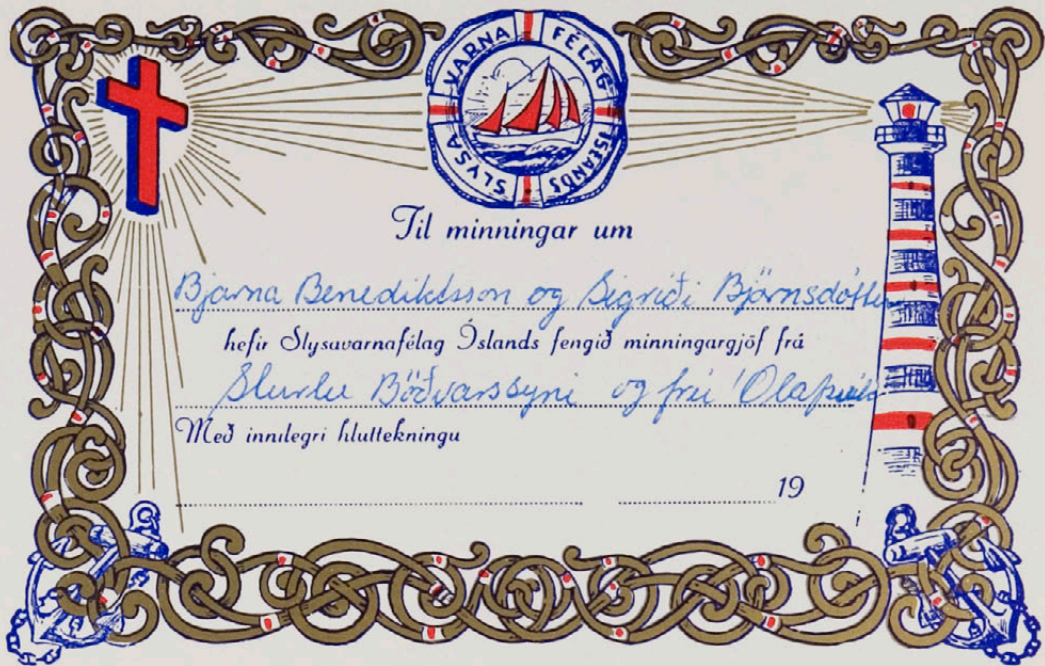 SLYSA VARNA FÉLAG ÍSLANDS
Til minningar um
Bjarna Benediktsson og Sigríði Björnsdóttur
hefir Slysavarnafélag Íslands fengið minningargjöf frá
Sturlu Böðvarssyni og frú Ólafsvík
Með innilegri hluttekningu
19